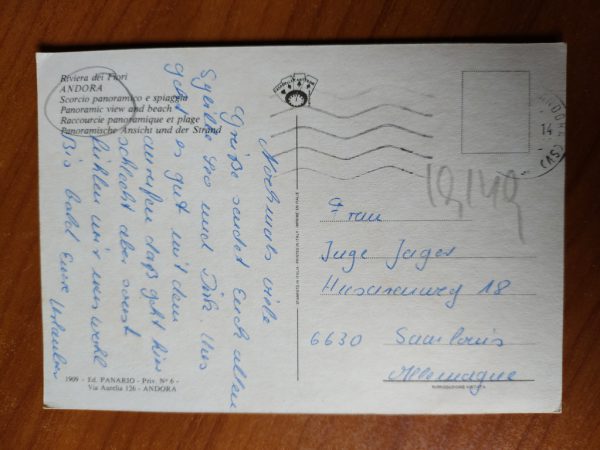 Riviera dei Fiori
ANDORA
Scorcio panoramico e spiaggia
Panoramic view and beach
Raccourcie panoramique et plage
Panoramische Ansicht und der Strand
Nochmals viele
Grüße sendet Euch allen
Leo und Dirk. Uns
geht es gut mit dem
daß geht hier
schlecht aber sonst
fühlen wir uns wohl
Bis bald Eure Urlauber
1909 - Ed. PANARIO - Priv. N° 6 -
Via Aurelia 126 - ANDORA
14
(SV)
19,149
Frau
Inge Jager
Husarenweg 18
6630 Saarlouis
Allemagne
RIPRODUZIONE VIETATA